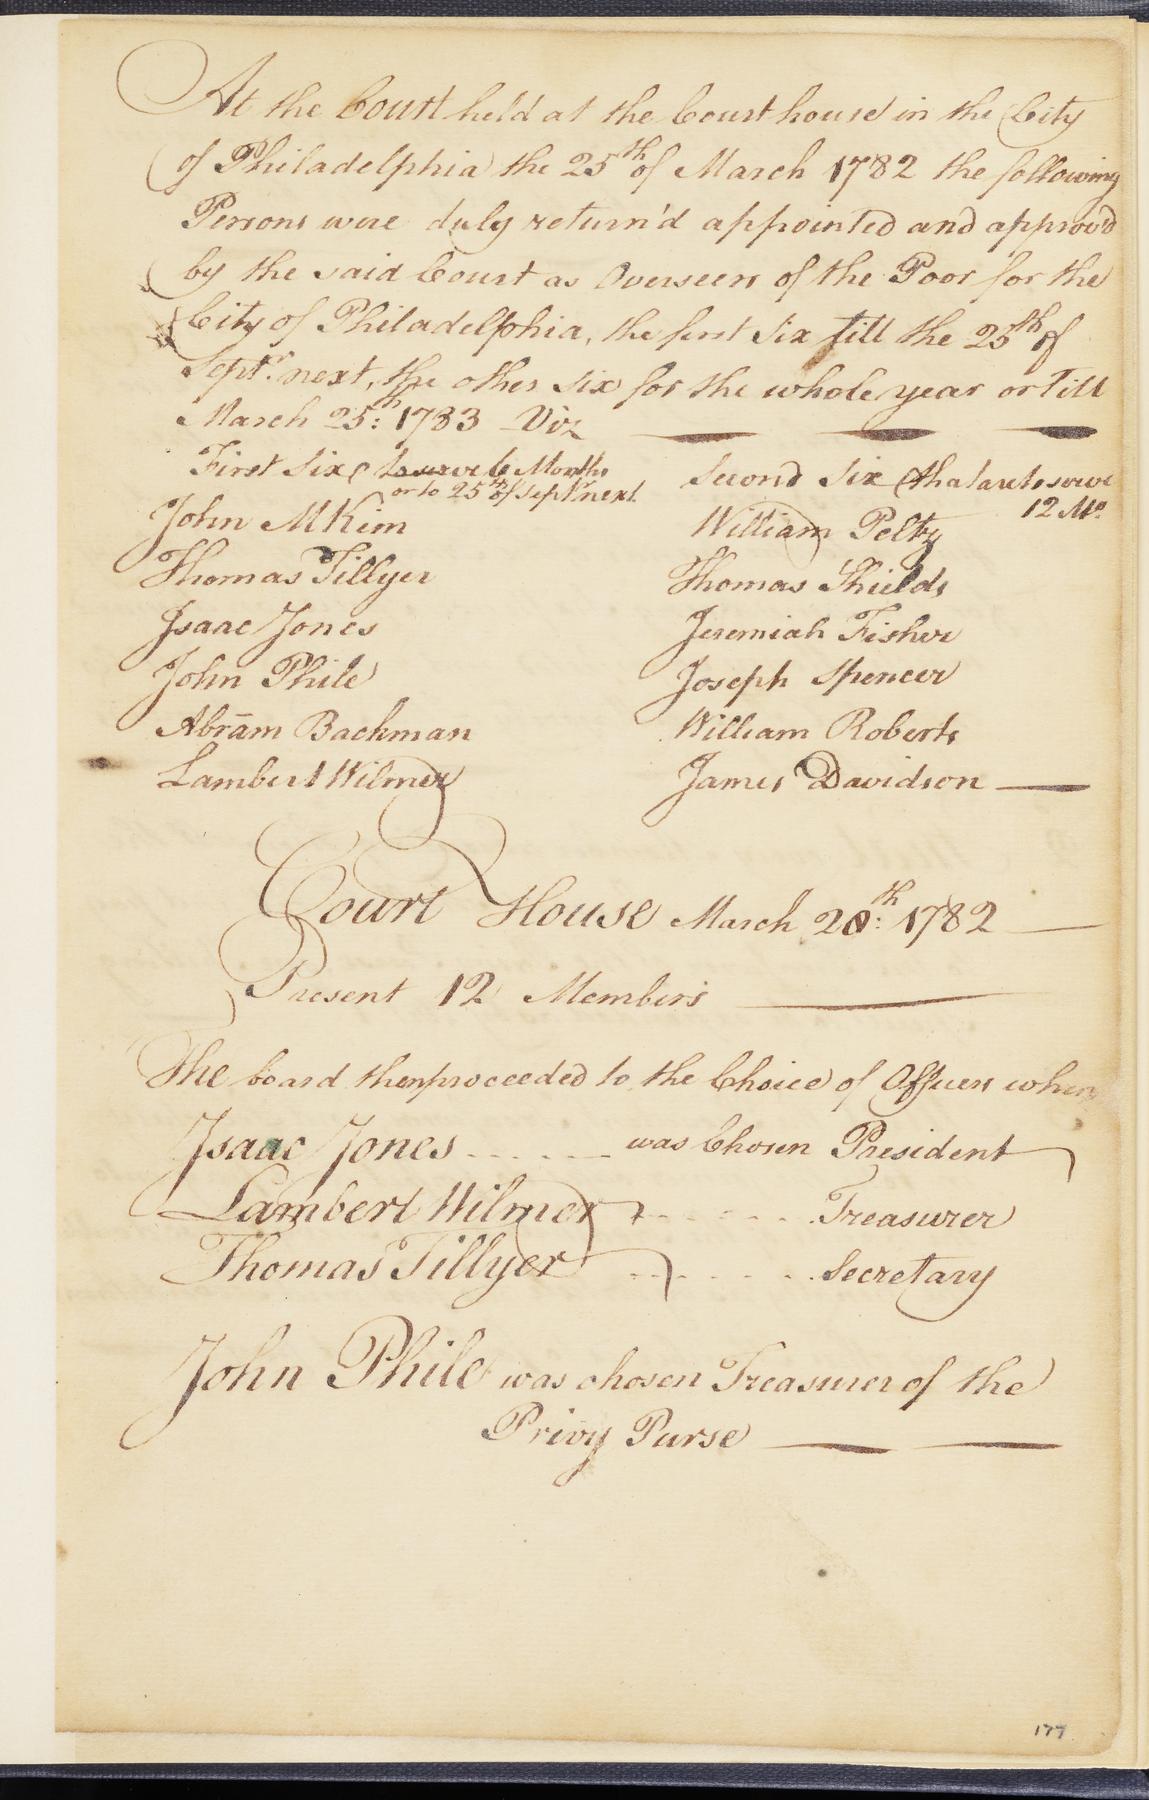 At the Court held at the Court house in the City
of Philadelphia the 25th of March 1782 the following
Persons were duly return'd appointed and approv'd
by the said Court as Overseers of the Poor for the
City of Philadelphia, the first Six till the 25th of
Septr. next, the other six for the whole year or Till
March 25th: 1783 Viz
First Six to serve 6 Months
or to 25th of Septr next
Second Six that are to serve
12 Mo.
John MKim
William Peltz
Thomas Tillyer
Thomas Shields
Isaac Jones
Jeremiah Fisher
John Phile
Joseph Spencer
Abram Backman
William Roberts
Lambert Wilmer
James Davidson
Court House March 28th: 1782
Present 12 Members
The board then proceeded to the Choice of Officers when
Isaac Jones ...... was Chosen President
Lambert Wilmer ...... Treasurer
Thomas Tillyer ...... Secretary
John Phile was chosen Treasurer of the
Privy Purse
177